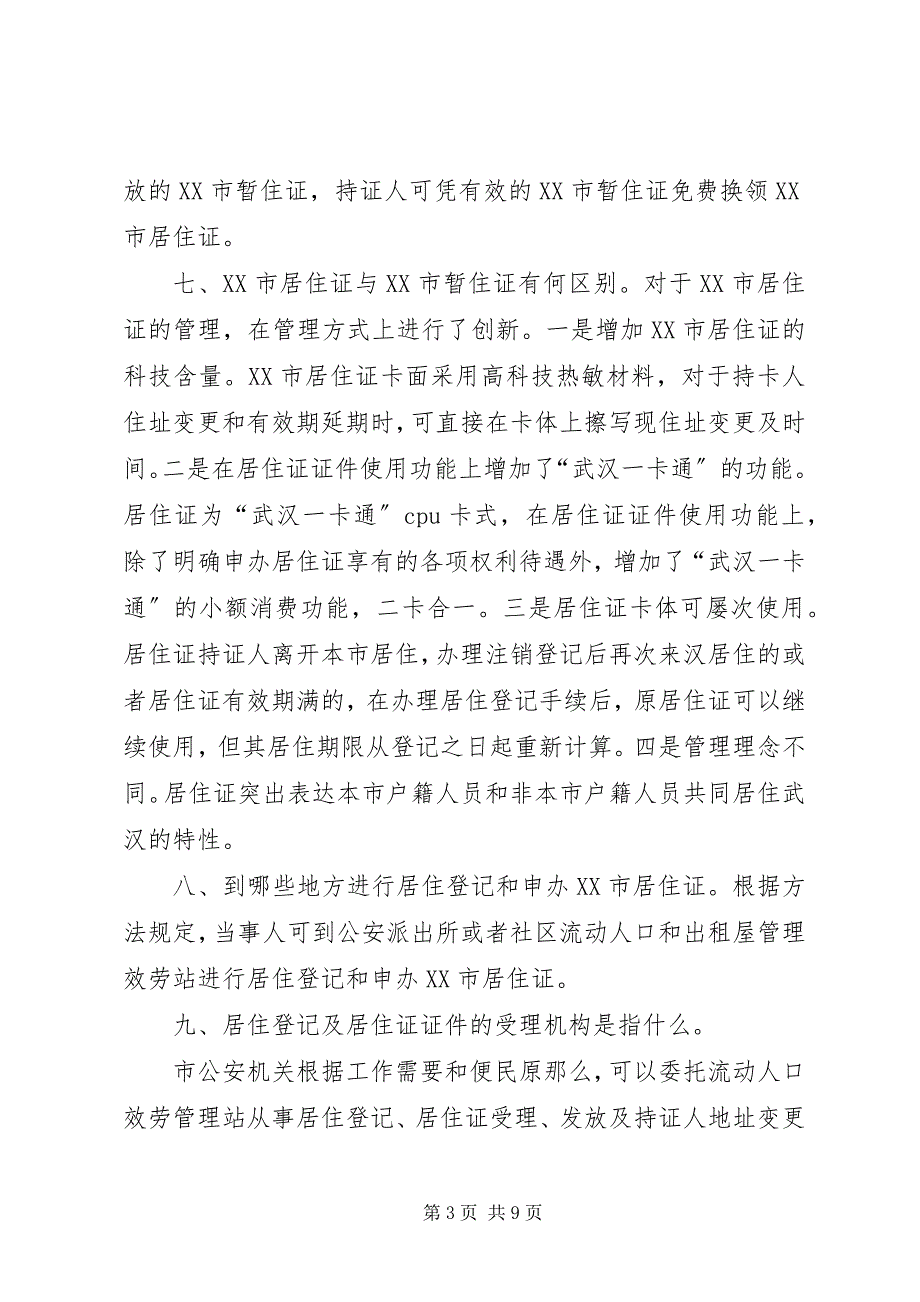 放的 XX 市暂住证，持证人可凭有效的 XX 市暂住证免费换领 XX
市居住证。
七、XX 市居住证与 XX 市暂住证有何区别。对于 XX 市居住
证的管理，在管理方式上进行了创新。一是增加 XX 市居住证的
科技含量。XX 市居住证卡面采用高科技热敏材料，对于持卡人
住址变更和有效期延期时，可直接在卡体上擦写现住址变更及时
间。二是在居住证证件使用功能上增加了“武汉一卡通〞的功能。
居住证为“武汉一卡通〞cpu 卡式，在居住证证件使用功能上，
除了明确申办居住证享有的各项权利待遇外，增加了“武汉一卡
通〞的小额消费功能，二卡合一。三是居住证卡体可屡次使用。
居住证持证人离开本市居住，办理注销登记后再次来汉居住的或
者居住证有效期满的，在办理居住登记手续后，原居住证可以继
续使用，但其居住期限从登记之日起重新计算。四是管理理念不
同。居住证突出表达本市户籍人员和非本市户籍人员共同居住武
汉的特性。
八、到哪些地方进行居住登记和申办 XX 市居住证。根据方
法规定，当事人可到公安派出所或者社区流动人口和出租屋管理
效劳站进行居住登记和申办 XX 市居住证。
九、居住登记及居住证证件的受理机构是指什么。
市公安机关根据工作需要和便民原那么，可以委托流动人口
效劳管理站从事居住登记、居住证受理、发放及持证人地址变更
第 3 页 共 9 页